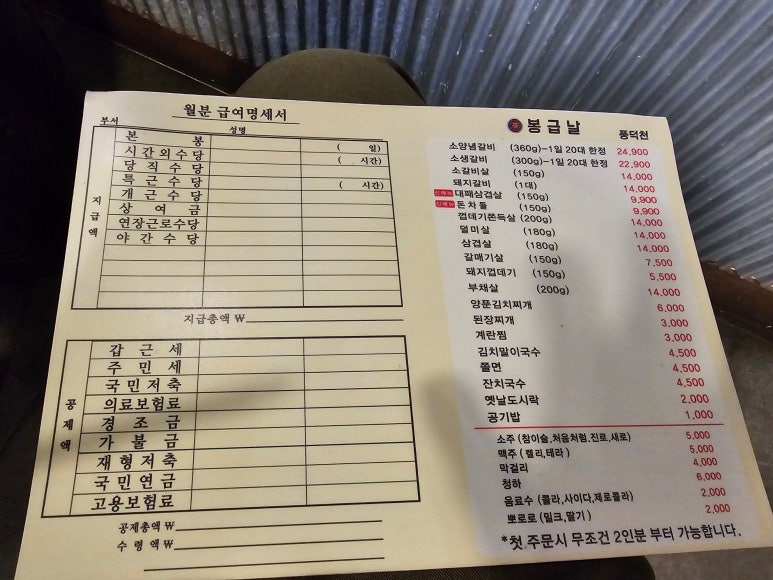 월분 급여명세서
부서
성명
지급액
본 봉 ( 일)
시간외수당 ( 시간)
당직수당
특근수당 ( 시간)
개근수당
상여금
연장근로수당
야간수당
지급총액 ₩
공제액
갑근세
주민세
국민저축
의료보험료
경조금
가불금
재형저축
국민연금
고용보험료
공제총액 ₩
수령액 ₩
봉급날 풍덕천
소양념갈비 (360g)-1일 20대 한정 24,900
소생갈비 (300g)-1일 20대 한정 22,900
소갈비살 (150g) 14,000
돼지갈비 (1대) 14,000
신메뉴 대패삼겹살 (150g) 9,900
신메뉴 돈차돌 (150g) 9,900
껍데기쫀득살 (200g) 14,000
덜미살 (180g) 14,000
삼겹살 (180g) 14,000
갈매기살 (150g) 7,500
돼지껍데기 (150g) 5,500
부채살 (200g) 14,000
양푼김치찌개 6,000
된장찌개 3,000
계란찜 3,000
김치말이국수 4,500
쫄면 4,500
잔치국수 4,500
옛날도시락 2,000
공기밥 1,000
소주 (참이슬,처음처럼,진로,새로) 5,000
맥주 (켈리,테라) 5,000
막걸리 4,000
청하 6,000
음료수 (콜라,사이다,제로콜라) 2,000
뽀로로 (밀크,딸기) 2,000
*첫 주문시 무조건 2인분 부터 가능합니다.